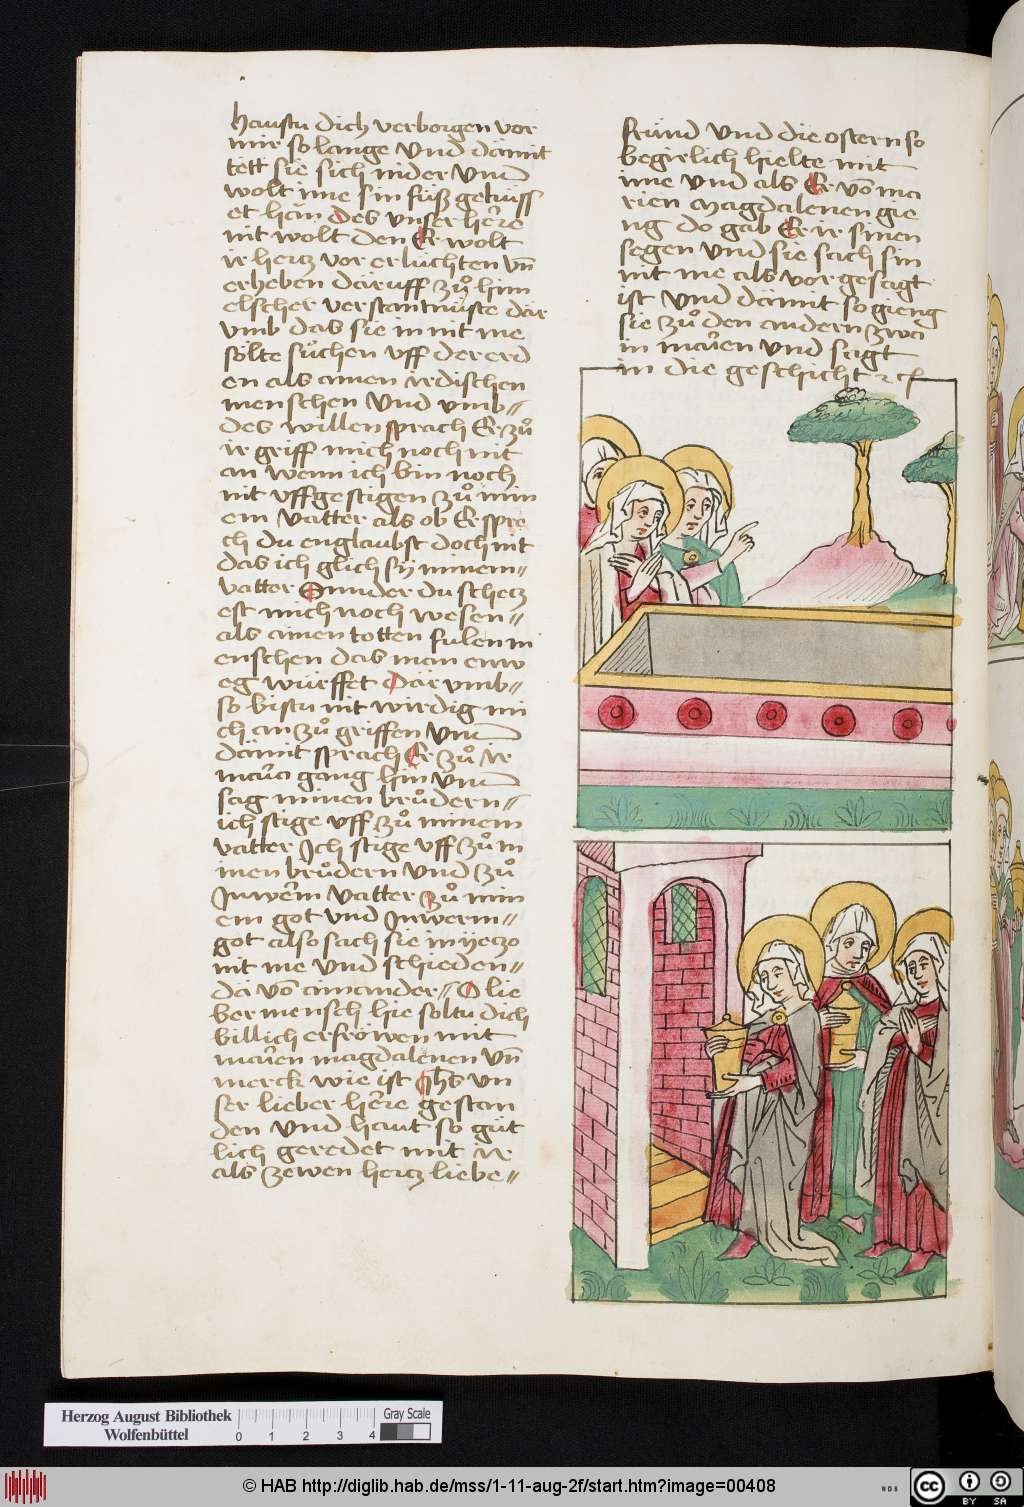 haustu dich verborgen vor
mir so lange Vnd dämit
tett sie sich nider Vnd
wolt ime sin füß geküss
et hän Des vnser here
nit wolt den Er wolt
ir hertz vor erlüchten vn̄
erheben däruff zů him
elscher verstantnüste där
vmb das sie in nit me
sölte sůchen vff der erd
en als ainen irdischen
menschen Vnd vmb〃
des willen sprach Er zů
ir griff mich noch nit
an wenn ich bin noch
nit vffgestigen zů min
em Vatter als ob Er spre
ch du englaubst doch nit
das ich glich sÿ minem〃
Vatter Sunder du schetz
est mich noch wesen〃
als ainen totten fulen m
enschen das man enw
eg würffet Där vmb〃
so bistu nit wirdig mi
ch an zů griffen Vnd
dämit sprach Er zů ir
maria gang hin Vnd
sag minen brůdern〃
ich stige vff zů minem
vatter Ich stige vff zů m
inen brůdern Vnd zů
Juwerm Vatter zů min
em got vnd Juwerm〃
got also sach sie in yeczo
nit me Vnd schieden〃
dä vō ainander〃 O lie
ber mensch hie soltu dich
billich erfröwen mit
marien magdalenen vn̄
merck wie ist Jhs vn
ser lieber here gestan
den Vnd haut so güt
lich geredet mit ir
als zewen hertz liebe〃
fründ Vnd die ostern so
begirlich hielte mit
ime Vnd als Er vō ma
rien Magdalenen gie
ng do gab Er ir sinen
segen Vnd sie sach sin
nit me als vor gesagt
ist Vnd dämit so gieng
sie zů den andern zwa
in marien Vnd sagt
in die geschicht ⁊c
Herzog August Bibliothek
Wolfenbüttel
0 1 2 3 4
Gray Scale
© HAB http://diglib.hab.de/mss/1-11-aug-2f/start.htm?image=00408
cc BY SA